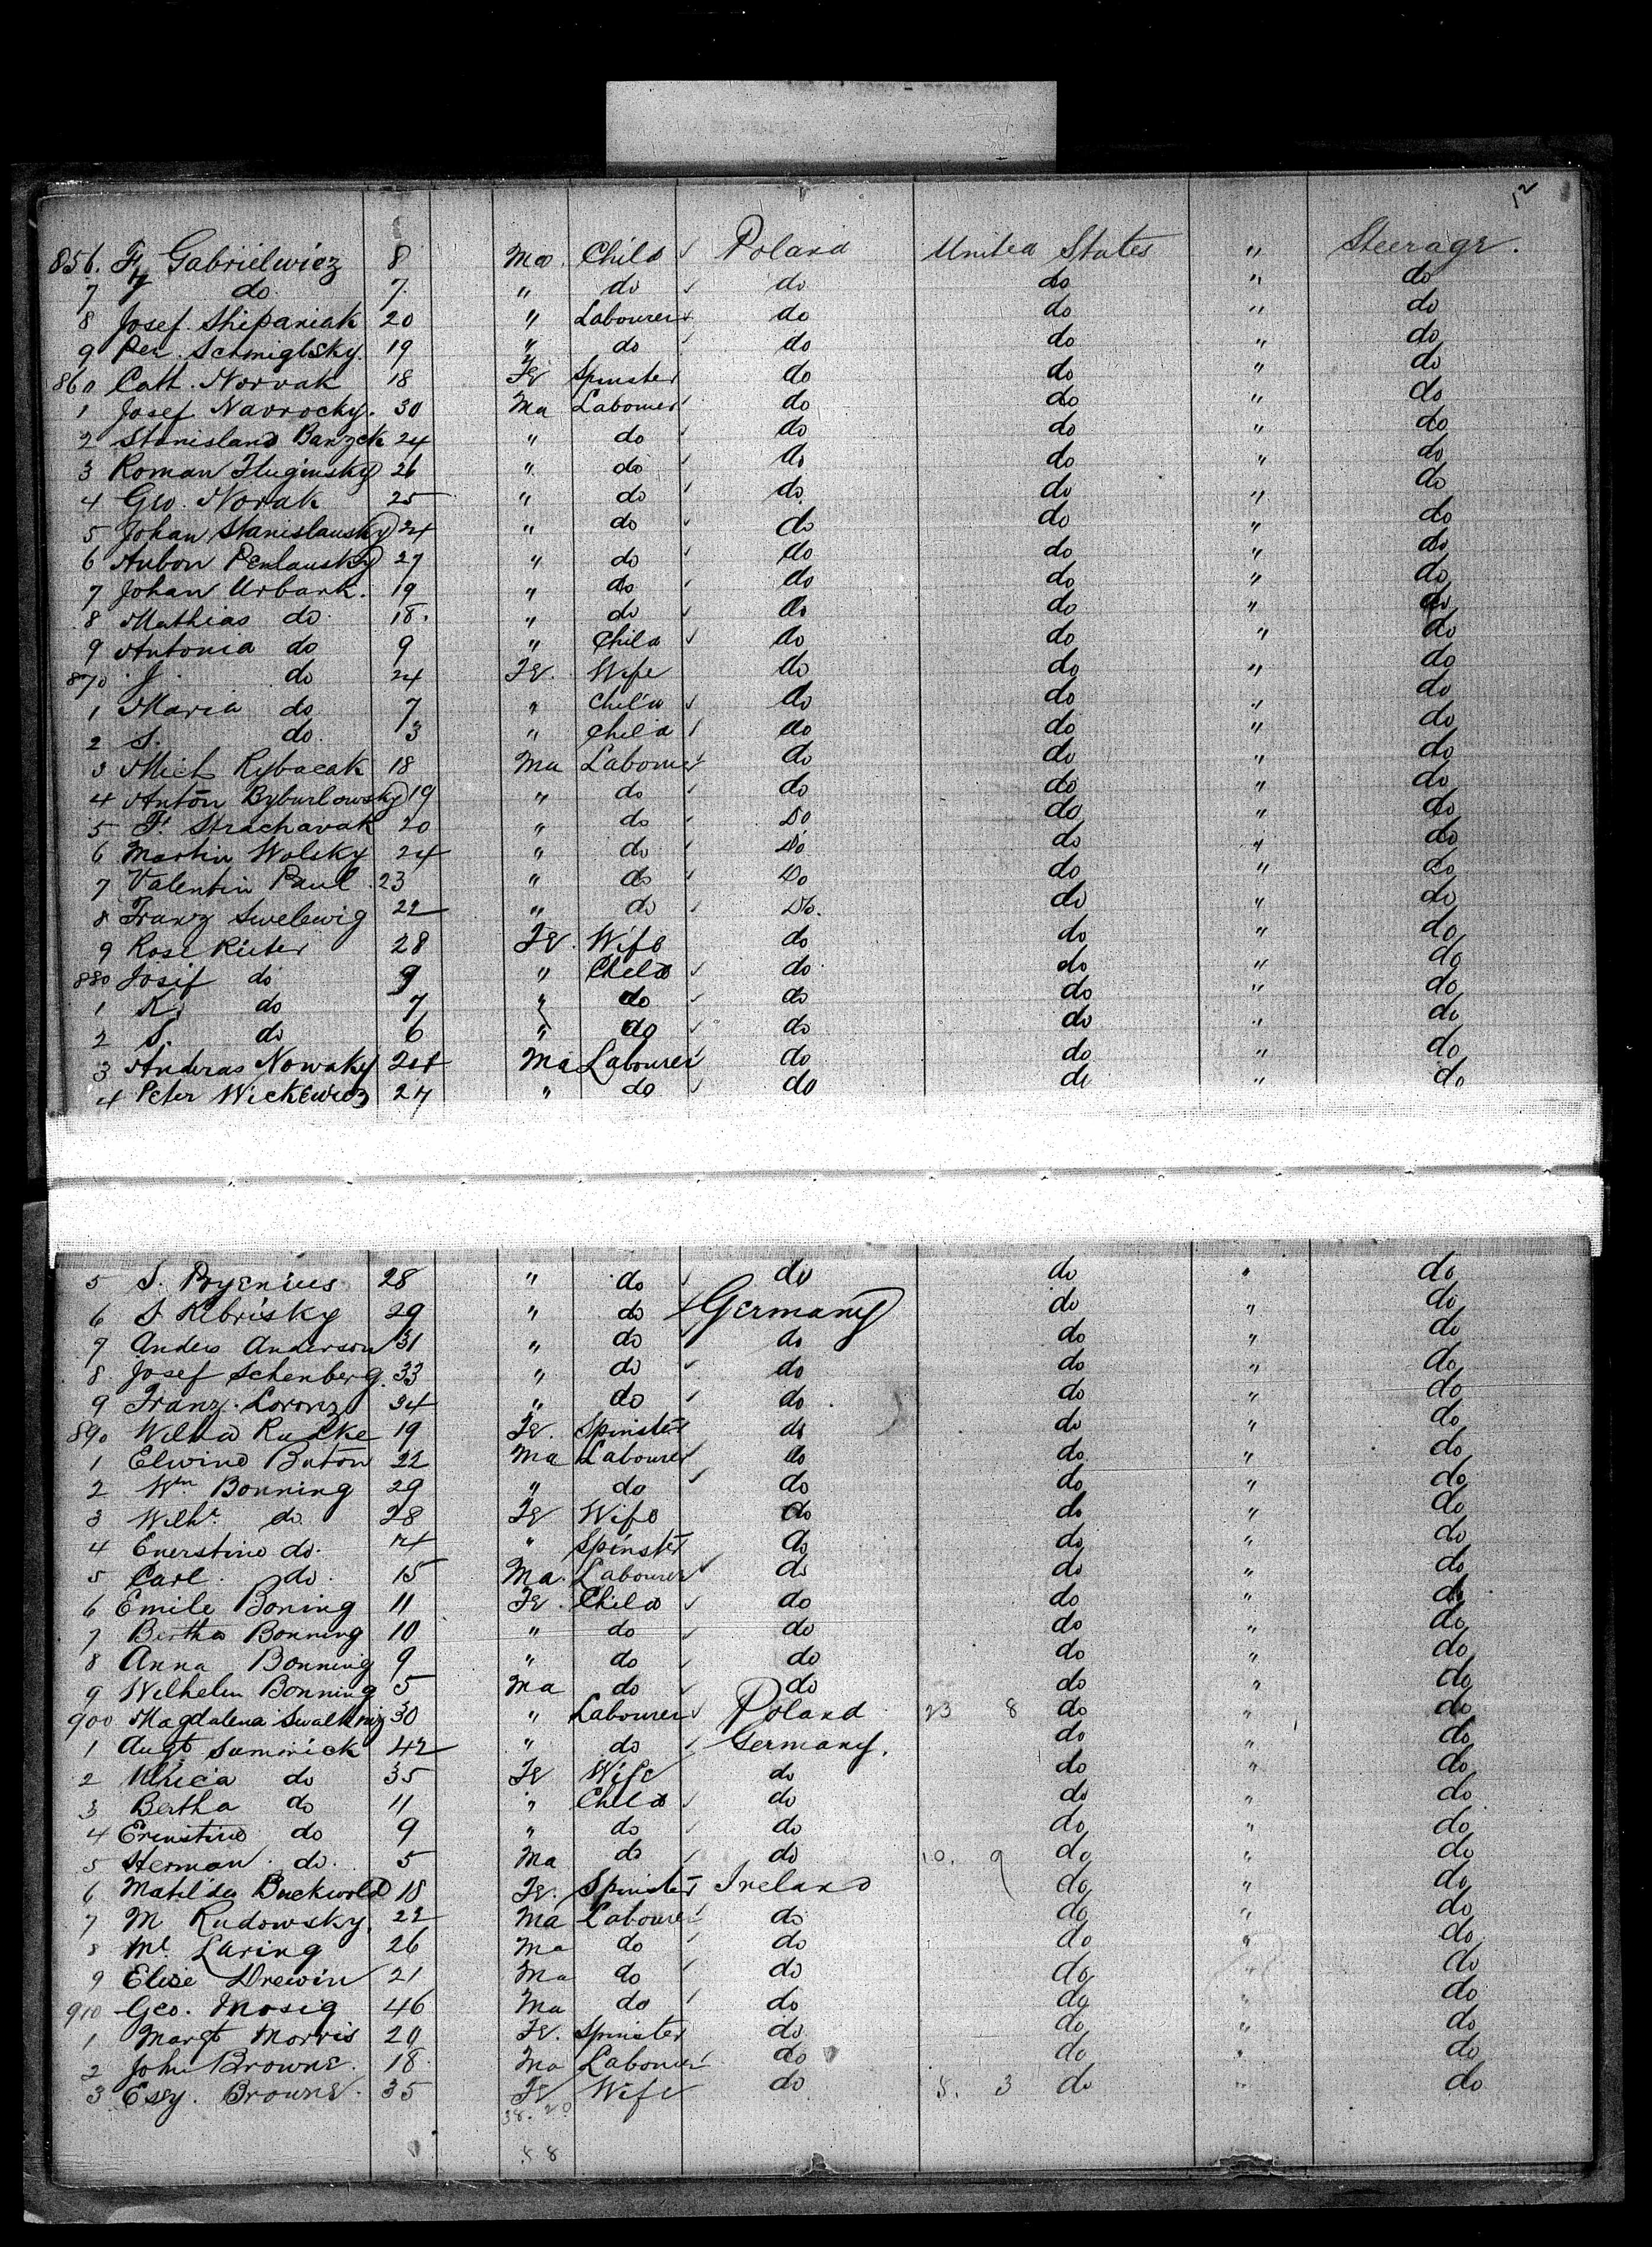 12
856. Fz Gabrielwicz 8 Ma. Child ✓ Poland United States " Steerage.
7 J do. 7. " do ✓ do do " do
8 Josef. Shipaniak 20 " Labourer ✓ do do " do
9 Per. Schmiglsky. 19 " do ✓ do do " do
860 Cath. Norvak 18 Fe Spinster do do " do
1 Josef Navrocky. 30 Ma Labourer do do " do
2 Stanisland Banzek 24 " do ✓ do do " do
3 Roman Fluginsky 26 " do ✓ do do " do
4 Geo. Novak 25 " do ✓ do do " do
5 Johan Stanislausky 24 " do ✓ do do " do
6 Anbon Penlausky 27 " do ✓ do do " do
7 Johan Urbank. 19 " do ✓ do do " do
8 Mathias do. 18. " do ✓ do do " do
9 Antonia do 9 " Child ✓ do do " do
870 J. do 24 Fe. Wife do do " do
1 Maria do 7 " Child ✓ do do " do
2 S. do. 3 " Child ✓ do do " do
3 Mich Rybacak 18 Ma Labourer do do " do
4 Anton Byburlowsky 19 " do ✓ do do " do
5 F. Strachavak 20 " do ✓ Do do " do
6 Martin Wolsky 24 " do ✓ Do do " do
7 Valentin Paul. 23 " do ✓ Do do " do
8 Franz Swelewig 22 " do ✓ Do. do " do
9 Rose Rieter 28 Fe. Wife do do " do
880 Josif do 9 " Child ✓ do do " do
1 K. do 7 " do ✓ do do " do
2 S. do 6 " do ✓ do do " do
3 Anderas Nowaky 24 Ma Labourer do do " do
4 Peter Wickewicz 24 " do ✓ do do " do
5 S. Pryenius 28 " do ✓ do do " do
6 S Rebrisky 29 " do ✓ Germany do " do
7 Anders Anderson 31 " do ✓ do do " do
8. Josef Schenberg. 33 " do ✓ do do " do
9 Franz. Loronz 34 " do ✓ do. do " do
890 Welha Rucke 19 Fe. Spinster do do " do
1 Elwine Buton 22 Ma Labourer do do " do
2 Wm Bonning 29 " do ✓ do do " do
3 Wilhr. do. 28 Fe Wife do do " do
4 Enerstine do. " Spinster do do " do
5 Carl. do. 15 Ma. Labourer ✓ do do " do
6 Emile Boning 11 Fe. Child ✓ do do " do
7 Bertha Bonning 10 " do ✓ do do " do
8 Anna Bonning 9 " do ✓ do do " do
9 Wilhelm Bonning 5 Ma do ✓ do do " do
900 Magdalena 30 " Labourer ✓ Poland 23 8 do " do
1 Augt Sumerick 42 " do ✓ Germany. do " do
2 Ulrica do 35 Fe Wife do do " do
3 Bertha do 11 " Child ✓ do do " do
4 Erenstine do 9 " do ✓ do do " do
5 Herman do. 5 Ma do ✓ do 10. 9 do " do
6 Matilda Buckwold 18 Fe. Spinster Ireland do " do
7 M Rudowsky. 22 Ma Labourer do do " do
8 Ml Laring 26 Ma do ✓ do do " do
9 Elise Drewin 21 Ma do ✓ do do " do
910 Geo. Mosig 46 Ma do ✓ do do " do
1 Margt Morris 20 Fe. Spinster do do " do
2 John Browne. 18. Ma Labourer do do " do
3 Essy. Browne. 35 Fe Wife do 5. 3 do " do
38. 20
58